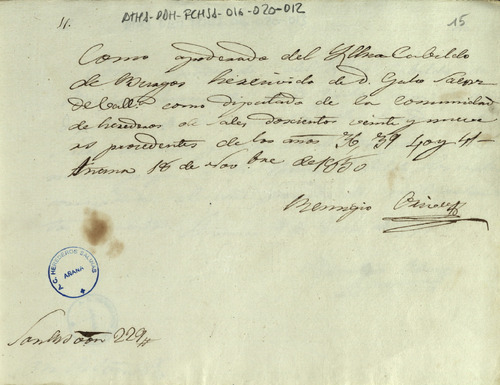 4.
ATHA-DAH-FCHSA-016-020-012
15
Como apoderado del Ylltre Cabildo
de Burgos he recivido de D. Galo Saenz
de Vall.o como diputado de la comunidad
de herederos reales doscientos veinte y nueve
rs procedentes de los años 38 39 40 y 41
Anana 18 de Nobre de 1850
Remigio
T.C. HEREDEROS SALINAS
AÑANA
Son 229